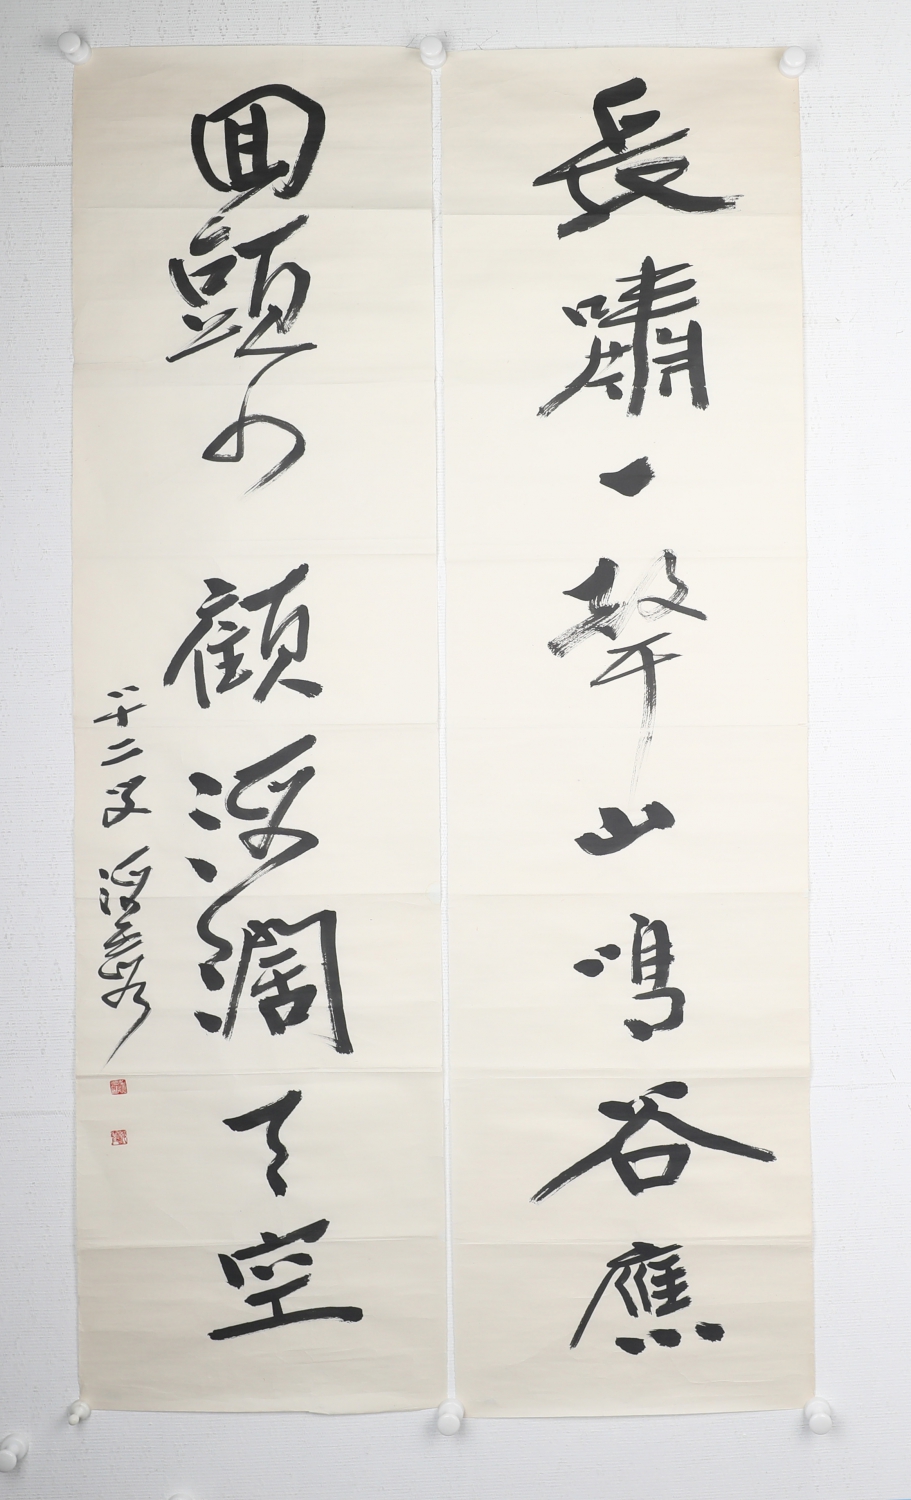 長嘯一聲山鳴谷應
回頭顧海闊天空
八十二叟